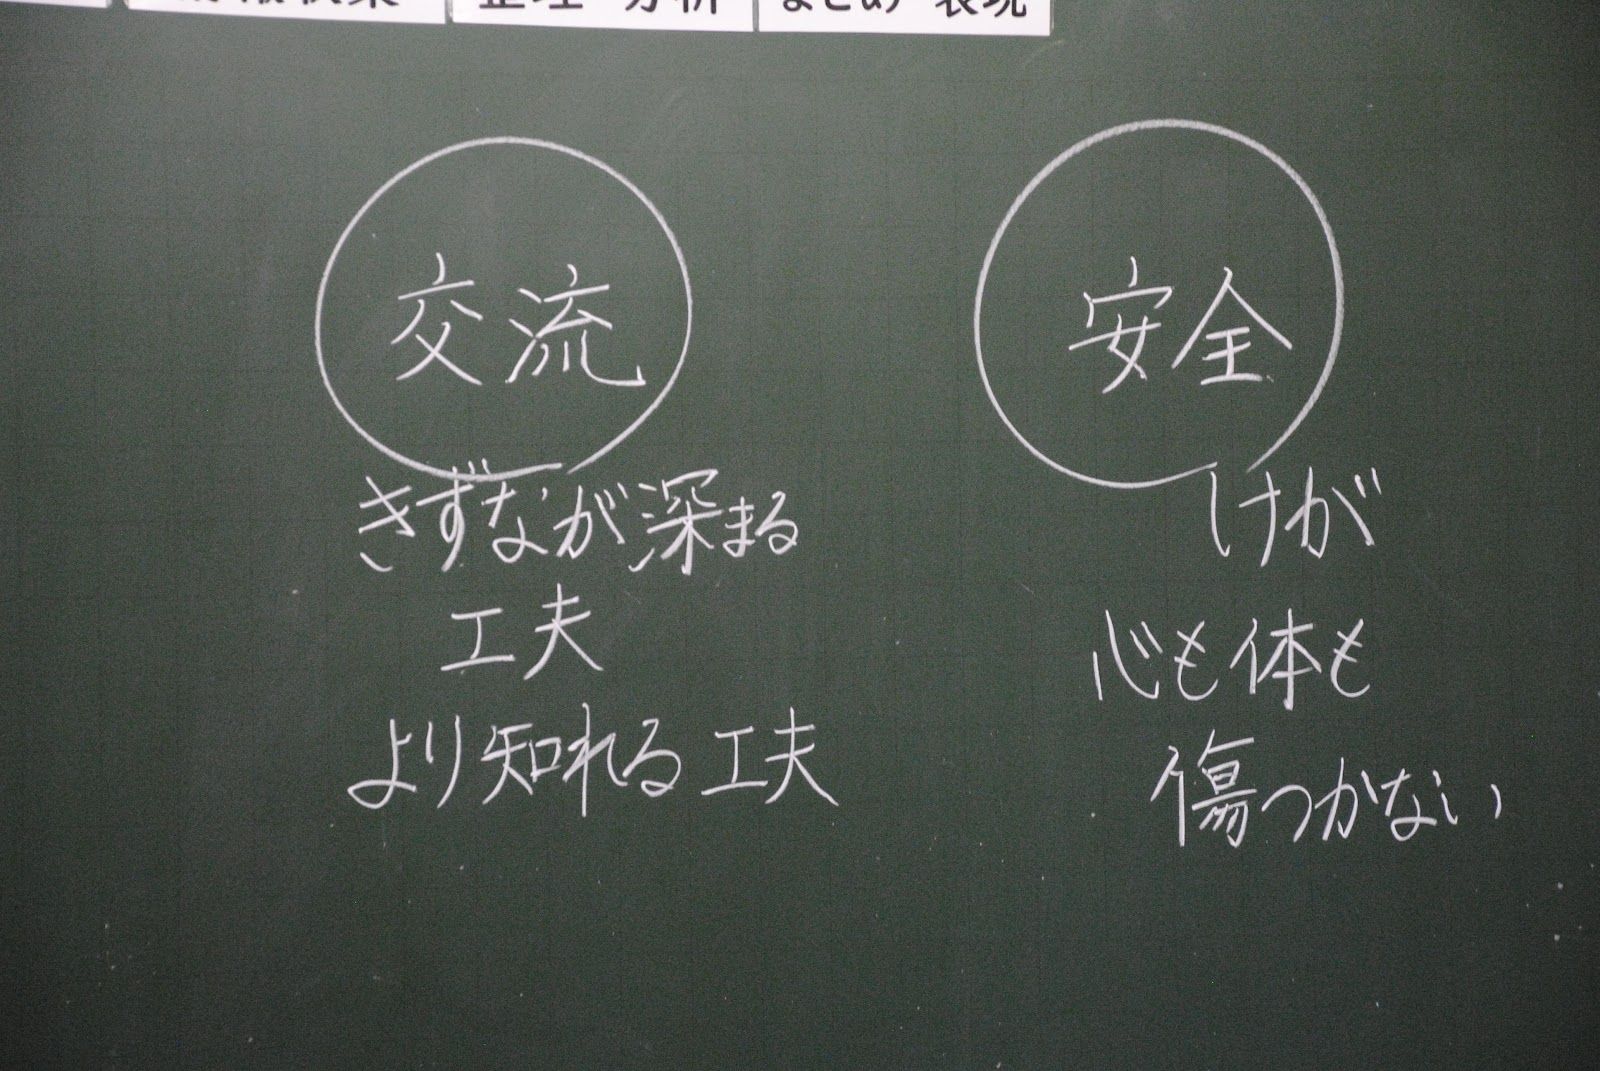 整理・分析
まとめ・表現
交流
きずなが深まる
工夫
より知れる工夫
安全
けが
心も体も
傷つかない